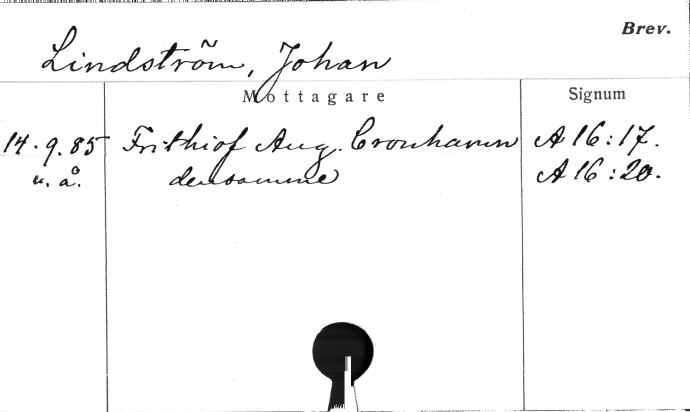 Brev.
Lindström, Johan
Mottagare Signum
14.9.85 Frithiof Aug. Cronhamn A 16:17.
u. å. densamme A 16:20.